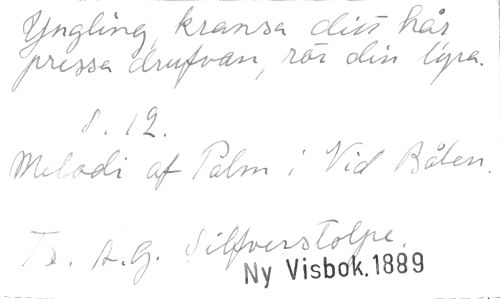 Yngling, kransa ditt hår
pressa drufvan, rör din lyra.
s. 12.
Melodi af Palm i Vid Bålen.
Td. A.G. Silfverstolpe.
Ny Visbok. 1889